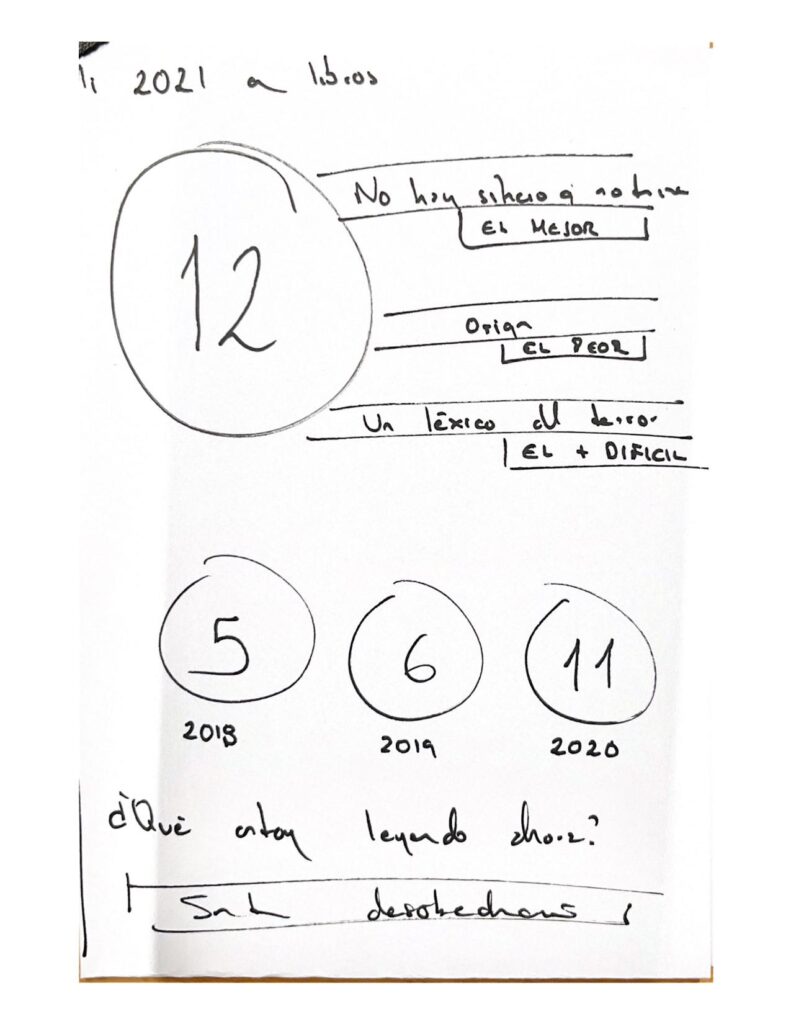 2021 a libros
12
No hay silencio q no termine
EL MEJOR
Origen
EL PEOR
Un léxico del terror
EL + DIFICIL
5
6
11
2018
2019
2020
¿Qué estoy leyendo ahora?